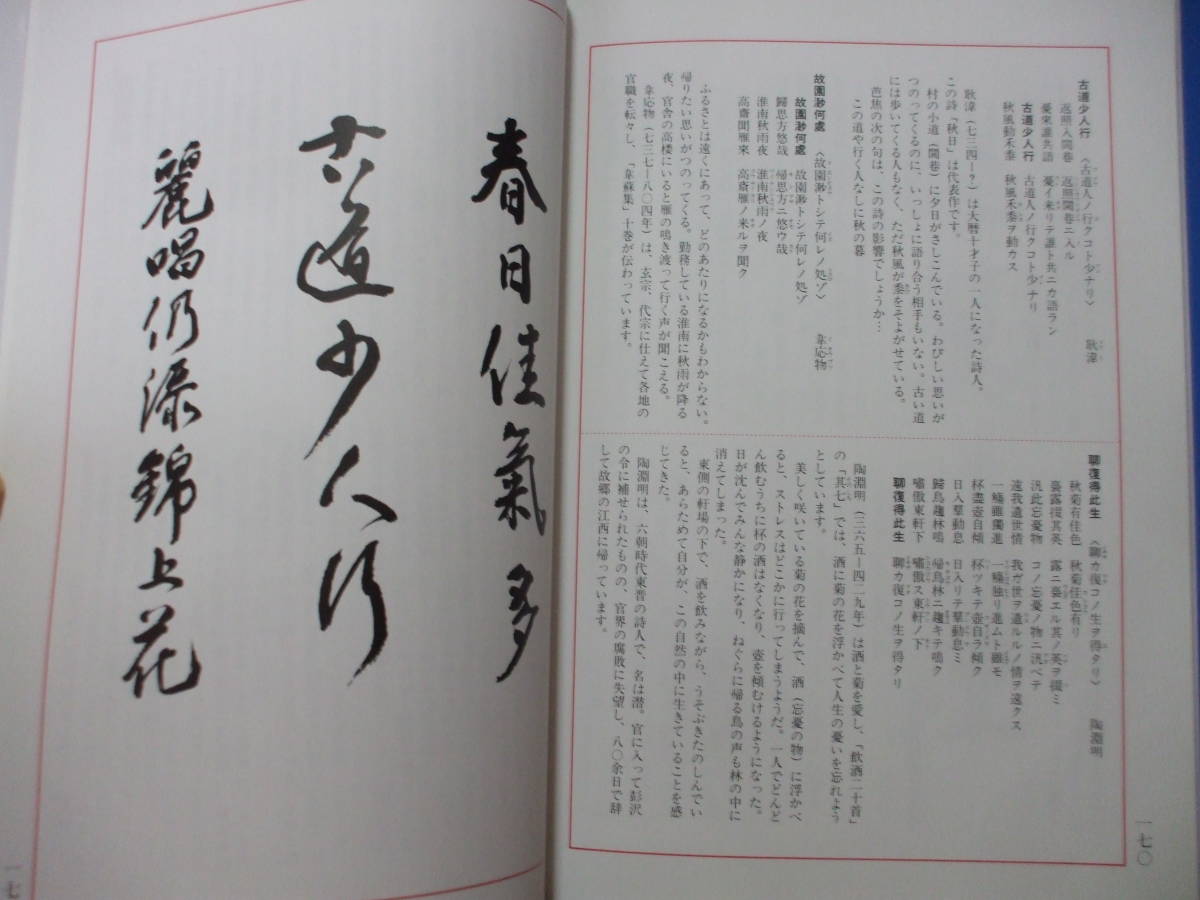 古道少人行 〈古道人ノ行クコト少ナリ〉 耿湋
返照入閭巷 返照閭巷ニ入ル
憂来誰共語 憂イ来リテ誰ト共ニカ語ラン
古道少人行 古道人ノ行クコト少ナリ
秋風動禾黍 秋風禾黍ヲ動カス
耿湋(七三四―?)は大暦十才子の一人になった詩人。
この詩「秋日」は代表作です。
村の小道(閭巷)に夕日がさしこんでいる。わびしい思いが
つのってくるのに、いっしょに語り合う相手もいない。古い道
には歩いてくる人もなく、ただ秋風が黍をそよがせている。
芭蕉の次の句は、この詩の影響でしょうか…
この道や行く人なしに秋の暮
故園渺何處 〈故園渺トシテ何レノ処ゾ〉 韋応物
故園渺何處 故園渺トシテ何レノ処ゾ
歸思方悠哉 帰思方ニ悠ウ哉
淮南秋雨夜 淮南秋雨ノ夜
高斎聞雁來 高斎雁ノ来ルヲ聞ク
ふるさとは遠くにあって、どのあたりになるかもわからない。
帰りたい思いがつのってくる。勤務している淮南に秋雨が降る
夜、官舎の高楼にいると雁の鳴き渡って行く声が聞こえる。
韋応物(七三七―八〇四年)は、玄宗、代宗に仕えて各地の
官職を転々し、「韋蘇集」十巻が伝わっています。
聊復得此生 〈聊カ復コノ生ヲ得タリ〉 陶淵明
秋菊有佳色 秋菊佳色有リ
裛露掇其英 露ニ裛エル其ノ英ヲ掇ミ
汎此忘憂物 コノ忘憂ノ物ニ汎ベテ
遠我遺世情 我ガ世ヲ遺ルルノ情ヲ遠クス
一觴雖獨進 一觴独リ進ムト雖モ
杯盡壺自傾 杯ツキテ壺自ラ傾ク
日入羣動息 日入リテ羣動息ミ
歸鳥趨林鳴 帰鳥林ニ趨キテ鳴ク
嘯傲東軒下 嘯傲ス東軒ノ下
聊復得此生 聊カ復コノ生ヲ得タリ
陶淵明(三六五―四二九年)は酒と菊を愛し、「飲酒二十首」
の「其七」では、酒に菊の花を浮かべて人生の憂いを忘れよう
としています。
美しく咲いている菊の花を摘んで、酒(忘憂の物)に浮かべ
ると、ストレスはどこかに行ってしまうようだ。一人でどんど
ん飲むうちに杯の酒はなくなり、壺を傾むけるようになった。
日が沈んでみんな静かになり、ねぐらに帰る鳥の声も林の中に
消えてしまった。
東側の軒場の下で、酒を飲みながら、うそぶきたのしんでい
ると、あらためて自分が、この自然の中に生きていることを感
じてきた。
陶淵明は、六朝時代東晋の詩人で、名は潜。官に入って彭沢
の令に補せられたものの、官界の腐敗に失望し、八〇余日で辞
して故郷の江西に帰っています。
一七〇
春日佳氣多
古道少人行
麗唱仍添錦上花
一七